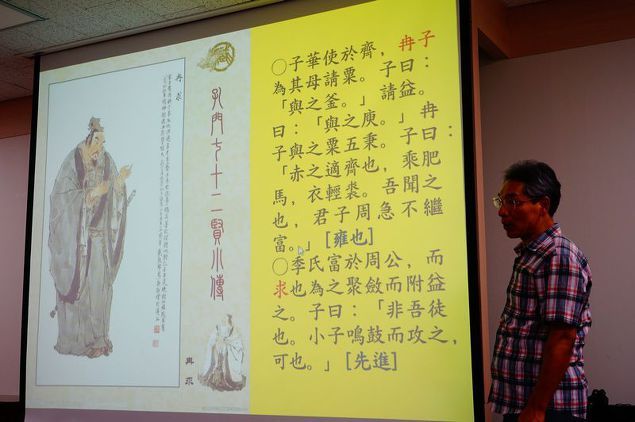 冉求
孔門七十二賢小傳
冉求
○子華使於齊，冉子
為其母請粟。子曰：
「與之釜。」請益。
曰：「與之庾。」冉
子與之粟五秉。子曰：
「赤之適齊也，乘肥
馬，衣輕裘。吾聞之
也，君子周急不繼
富。」[雍也]
○季氏富於周公，而
求也為之聚斂而附益
之。子曰：「非吾徒
也。小子鳴鼓而攻之，
可也。」[先進]